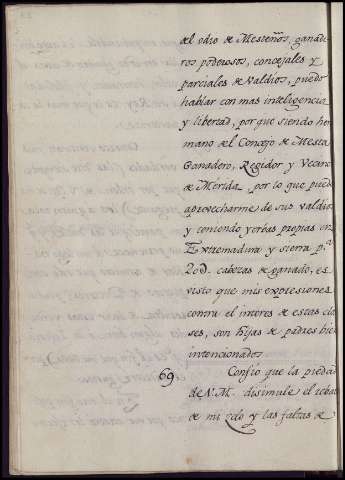 del odio de Mesteños, ganade
ros poderosos, concejales y
parciales de valdios, puedo
hablar con mas inteligencia
y libertad, por que siendo her
mano del Concejo de Mesta
Ganadero, Regidor y Vecino
de Merida, por lo que pued
aprovecharme de sus valdios
y teniendo yerbas propias en
Extremadura y sierra pª
20d. cabezas de ganado, es
visto que mis expresiones
contra el interes de estas cla
ses, son hijas de padres bien
intencionados.
69 Confio que la piedad
de V.M. disimule el
de mi zelo y las faltas de